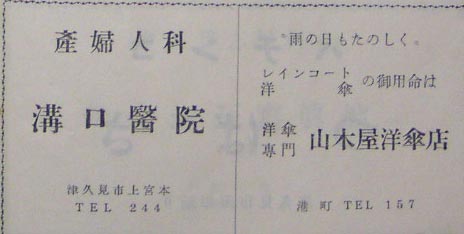 產婦人科
溝口醫院
津久見市上宮本
TEL 244
雨の日もたのしく。
レインコート
洋傘 の御用命は
洋傘
専門 山木屋洋傘店
港町 TEL 157